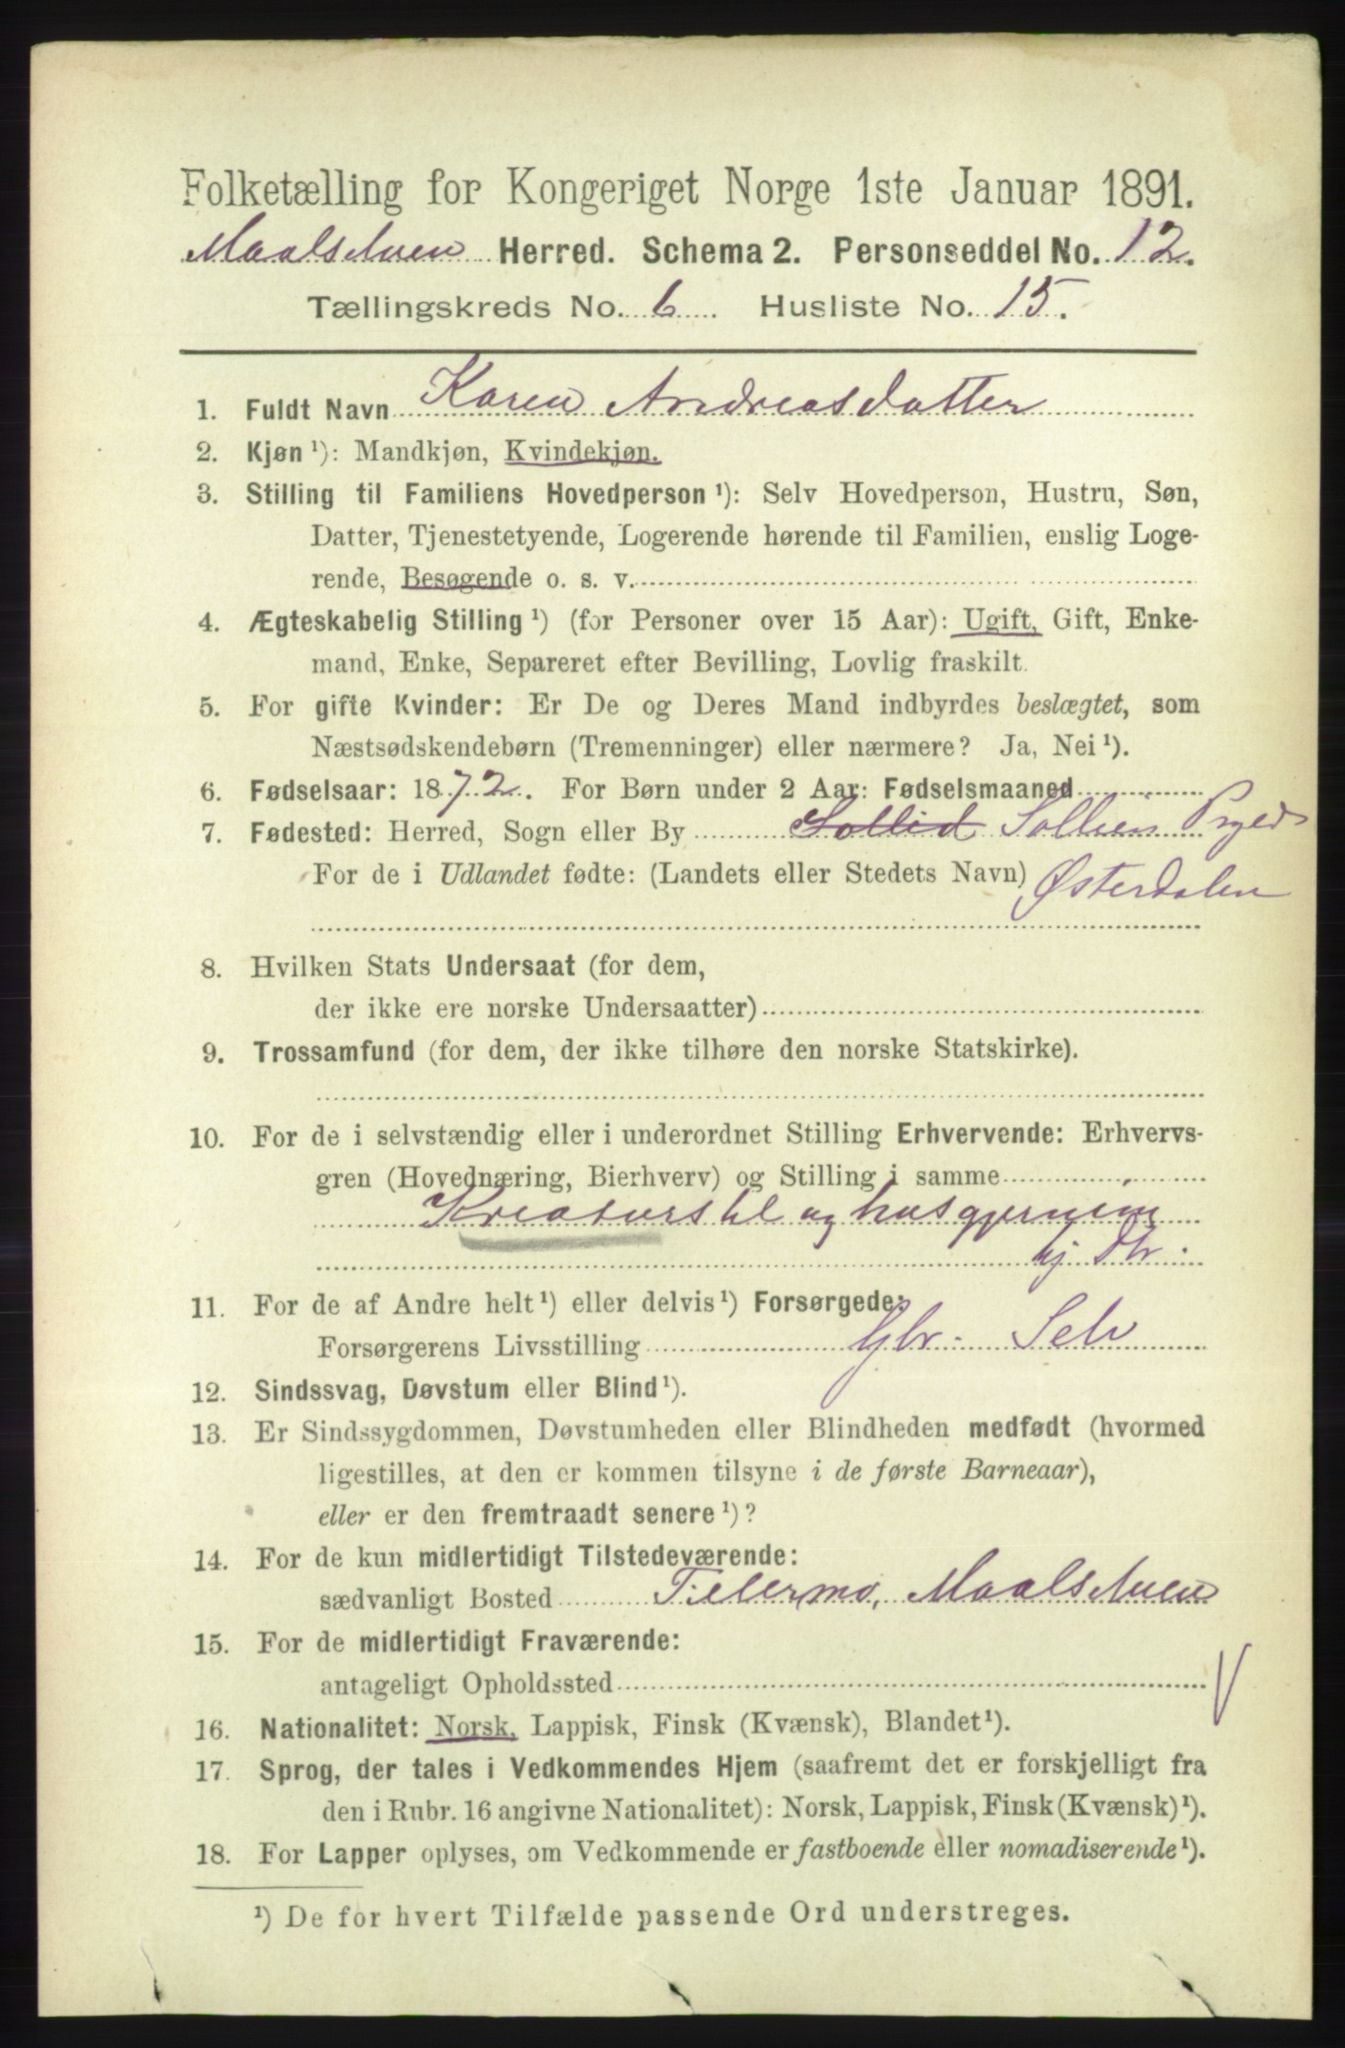 Folketælling for Kongeriget Norge 1ste Januar 1891.
Maalselven Herred. Schema 2. Personseddel No. 12.
Tællingskreds No. 6 Husliste No. 15.
1. Fuldt Navn Karen Andreasdatter
2. Kjøn ¹): Mandkjøn, Kvindekjøn.
3. Stilling til Familiens Hovedperson ¹): Selv Hovedperson, Hustru, Søn,
Datter, Tjenestetyende, Logerende hørende til Familien, enslig Loge-
rende, Besøgende o. s. v.
4. Ægteskabelig Stilling ¹) (for Personer over 15 Aar): Ugift, Gift, Enke-
mand, Enke, Separeret efter Bevilling, Lovlig fraskilt.
5. For gifte Kvinder: Er De og Deres Mand indbyrdes beslægtet, som
Næstsødskendebørn (Tremenninger) eller nærmere? Ja, Nei ¹).
6. Fødselsaar: 1872. For Børn under 2 Aar: Fødselsmaaned
7. Fødested: Herred, Sogn eller By Sollid Sollien Prgjeld
For de i Udlandet fødte: (Landets eller Stedets Navn) Østerdalen
8. Hvilken Stats Undersaat (for dem,
der ikke ere norske Undersaatter)
9. Trossamfund (for dem, der ikke tilhøre den norske Statskirke).
10. For de i selvstændig eller i underordnet Stilling Erhvervende: Erhvervs-
gren (Hovednæring, Bierhverv) og Stilling i samme
Kreaturstel og husgjerning
11. For de af Andre helt ¹) eller delvis ¹) Forsørgede:
Forsørgerens Livsstilling Gbr. Selv
12. Sindssvag, Døvstum eller Blind ¹).
13. Er Sindssygdommen, Døvstumheden eller Blindheden medfødt (hvormed
ligestilles, at den er kommen tilsyne i de første Barneaar),
eller er den fremtraadt senere ¹)?
14. For de kun midlertidigt Tilstedeværende:
sædvanligt Bosted Fillermo, Maalselven
15. For de midlertidigt Fraværende:
antageligt Opholdssted
16. Nationalitet: Norsk, Lappisk, Finsk (Kvænsk), Blandet ¹).
17. Sprog, der tales i Vedkommendes Hjem (saafremt det er forskjelligt fra
den i Rubr. 16 angivne Nationalitet): Norsk, Lappisk, Finsk (Kvænsk) ¹).
18. For Lapper oplyses, om Vedkommende er fastboende eller nomadiserende ¹).
¹) De for hvert Tilfælde passende Ord understreges.